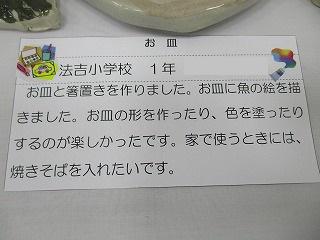 お 皿
法吉小学校　１年
お皿と箸置きを作りました。お皿に魚の絵を描
きました。お皿の形を作ったり、色を塗ったり
するのが楽しかったです。家で使うときには、
焼きそばを入れたいです。